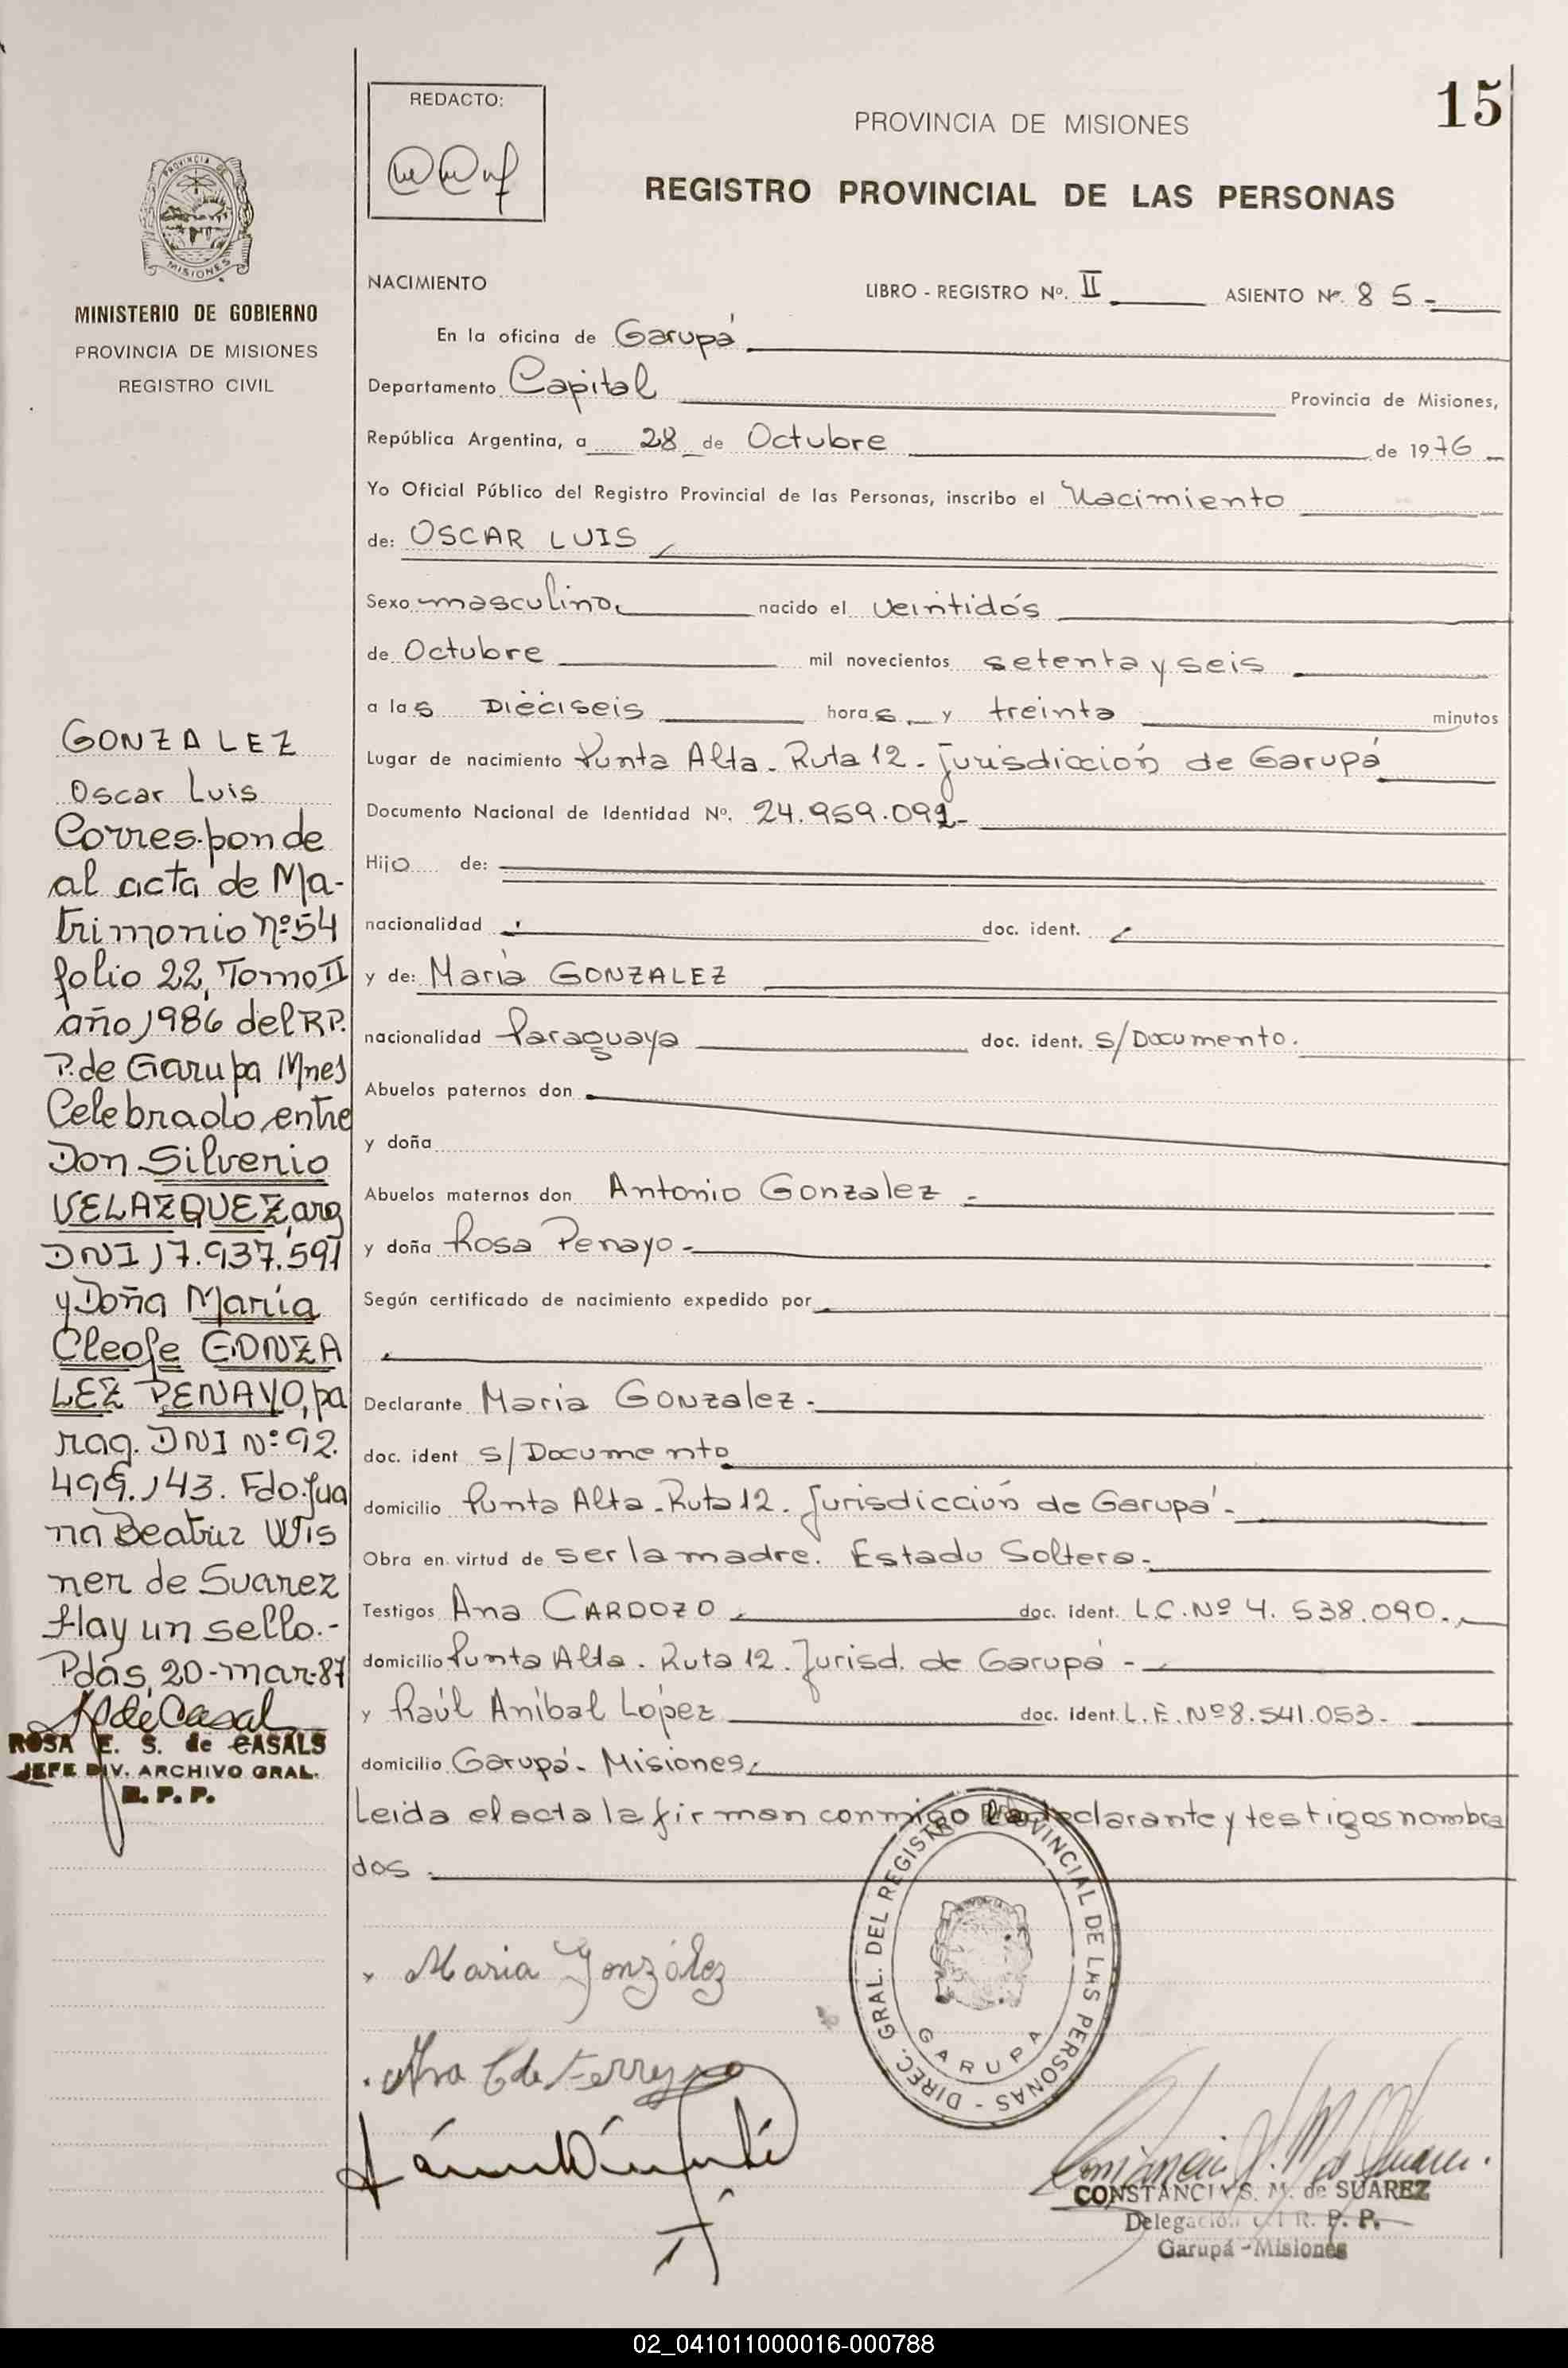 15
REDACTO:
PROVINCIA DE MISIONES
REGISTRO PROVINCIAL DE LAS PERSONAS
PROVINCIA DE
MISIONES
MINISTERIO DE GOBIERNO
PROVINCIA DE MISIONES
REGISTRO CIVIL
NACIMIENTO
LIBRO - REGISTRO Nº. II ASIENTO Nº. 85-
En la oficina de Garupá
Departamento Capital Provincia de Misiones,
República Argentina, a 28 de Octubre de 1976
Yo Oficial Público del Registro Provincial de las Personas, inscribo el Nacimiento
de: OSCAR LUIS
Sexo masculino nacido el veintidós
de Octubre mil novecientos setenta y seis
a las Dieciseis horas y treinta minutos
Lugar de nacimiento Punta Alta - Ruta 12 - Jurisdicción de Garupá
Documento Nacional de Identidad Nº. 24.959.091-
Hijo de:
nacionalidad doc. ident.
y de: María GONZALEZ
nacionalidad Paraguaya doc. ident. s/Documento.
Abuelos paternos don
y doña
Abuelos maternos don Antonio Gonzalez -
y doña Rosa Penayo -
Según certificado de nacimiento expedido por
Declarante Maria Gonzalez -
doc. ident s/Documento
domicilio Punta Alta - Ruta 12. Jurisdicción de Garupá -
Obra en virtud de ser la madre. Estado Soltera -
Testigos Ana CARDOZO doc. ident. L.C. Nº 4.538.090.-
domicilio Punta Alta. Ruta 12. Jurisd. de Garupá -
y Raúl Aníbal López doc. ident. L.E. Nº 8.541.053-
domicilio Garupá - Misiones
Leida el acta la firman conmigo la declarante y testigos nombra
dos.
GONZALEZ
Oscar Luis
Corresponde
al acta de Ma-
trimonio Nº 54
folio 22, Tomo II
año 1986 del R.P.
P. de Garupa Mnes
Celebrado entre
Don Silverio
VELAZQUEZ, arg
DNI 17.937.591
y Doña María
Cleofe GONZA
LEZ PENAYO, pa
rag. DNI Nº 92.
499.143. Fdo. Jua
na Beatriz Wis
ner de Suarez
Hay un sello.-
Pdas, 20-mar-87
ROSA E. S. de CASALS
JEFE DIV. ARCHIVO GRAL.
R. P. P.
DIREC. GRAL. DEL REGISTRO PROVINCIAL DE LAS PERSONAS -
GARUPA
Maria González
CONSTANCIA S. M. de SUAREZ
Delegación del R. P. P.
Garupá - Misiones
02_041011000016-000788